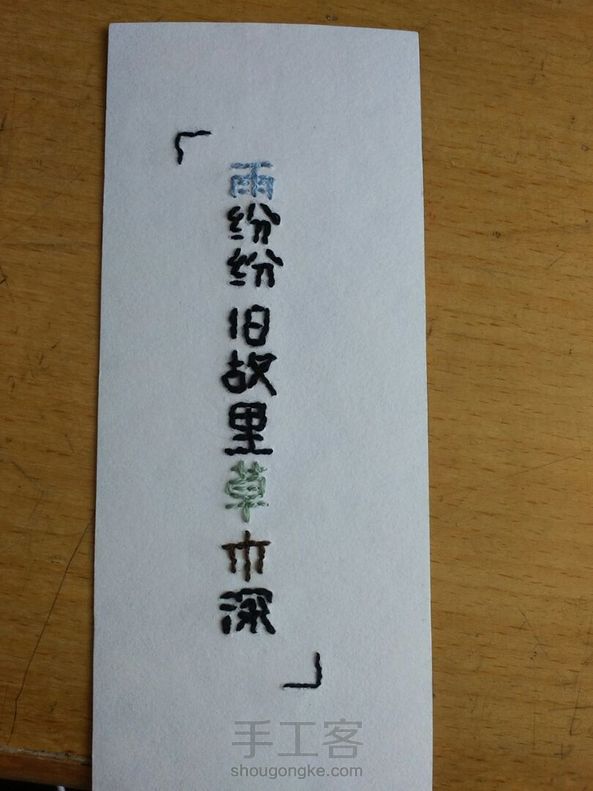 「雨纷纷旧故里草木深」
手工客
shougongke.com